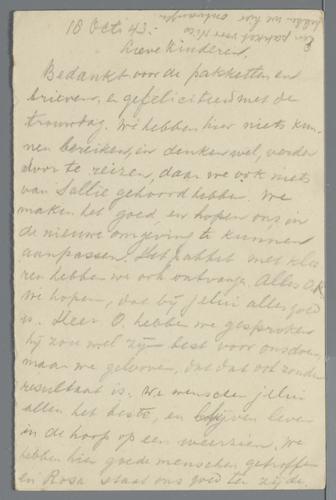 18 Oct. 43.
Een pakket voor Nico
hebben we hier ontvangen
Lieve Kinderen,
Bedankt voor de pakketten en
brieven, en gefeliciteerd met de
trouwdag. We hebben hier niets kun-
nen bereiken, en denken wel, verder
door te reizen, daar we ook niets
van Sallie gehoord hebben. We
maken het goed, en hopen ons in
de nieuwe omgeving te kunnen
aanpassen. Het pakket met klee
ren hebben we ook ontvangen. Alles O.K.
We hopen, dat bij jelui alles goed
is. Heer O. hebben we gesproken
hij zou wel zijn best voor ons doen,
maar we gelooven, dat dat ook zonder
resultaat is. We wenschen jelui
allen het beste, en blijven leven
in de hoop op een weerzien. We
hebben hier goede menschen getroffen
en Rosa staat ons goed ter zijde,